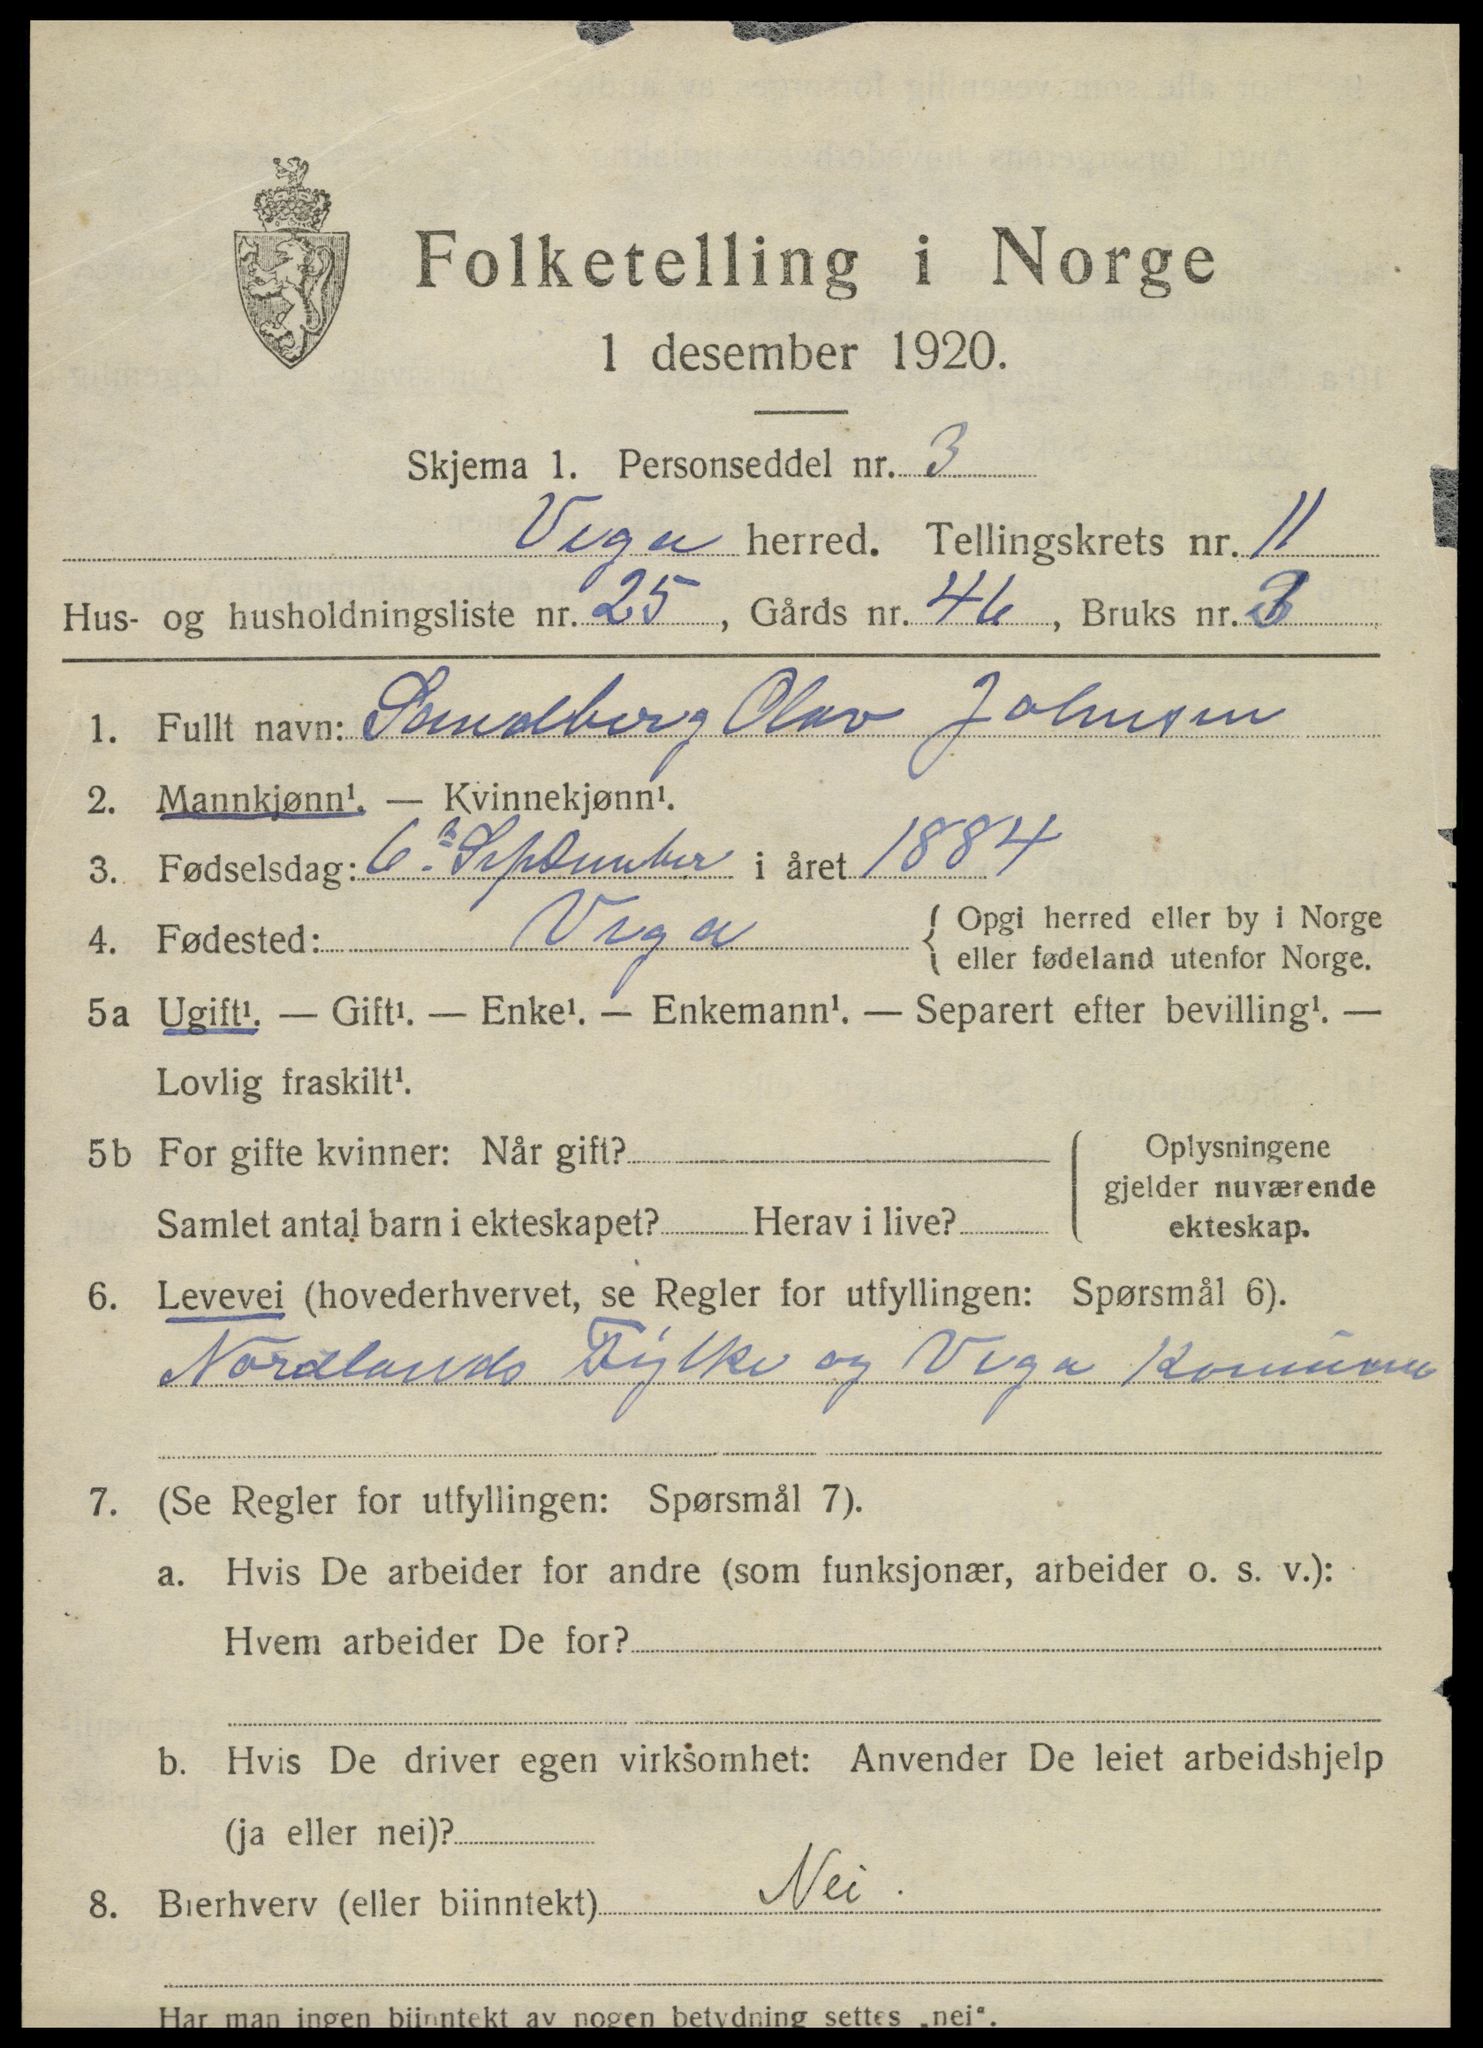 Folketelling i Norge
1 desember 1920.
Skjema 1. Personseddel nr. 3
Vega herred. Tellingskrets nr. 11
Hus- og husholdningsliste nr. 25, Gårds nr. 46, Bruks nr. 3
1. Fullt navn: Sandberg Olav Johnsen
2. Mannkjønn¹. — Kvinnekjønn¹.
3. Fødselsdag: 6. September i året 1884
4. Fødested: Vega { Opgi herred eller by i Norge
eller fødeland utenfor Norge.
5a Ugift¹. — Gift¹. — Enke¹. — Enkemann¹. — Separert efter bevilling¹. —
Lovlig fraskilt¹.
5b For gifte kvinner: Når gift?
Samlet antal barn i ekteskapet? Herav i live?
Oplysningene
gjelder nuværende
ekteskap.
6. Levevei (hovederhvervet, se Regler for utfyllingen: Spørsmål 6).
Nordlands Fylke og Vega Kommune
7. (Se Regler for utfyllingen: Spørsmål 7).
a. Hvis De arbeider for andre (som funksjonær, arbeider o. s. v.):
Hvem arbeider De for?
b. Hvis De driver egen virksomhet: Anvender De leiet arbeidshjelp
(ja eller nei)?
8. Bierhverv (eller biinntekt) Nei.
Har man ingen biinntekt av nogen betydning settes „nei“.